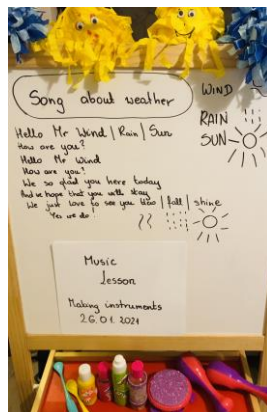 Song about weather
WIND
RAIN
SUN
Hello Mr Wind | Rain | Sun
How are you?
Hello Mr Wind
How are you?
We so glad you here today
And we hope that you will stay
We just love to see you blow | fall | shine
Yes we do!
Music
lesson
Making instruments
26.01.2021